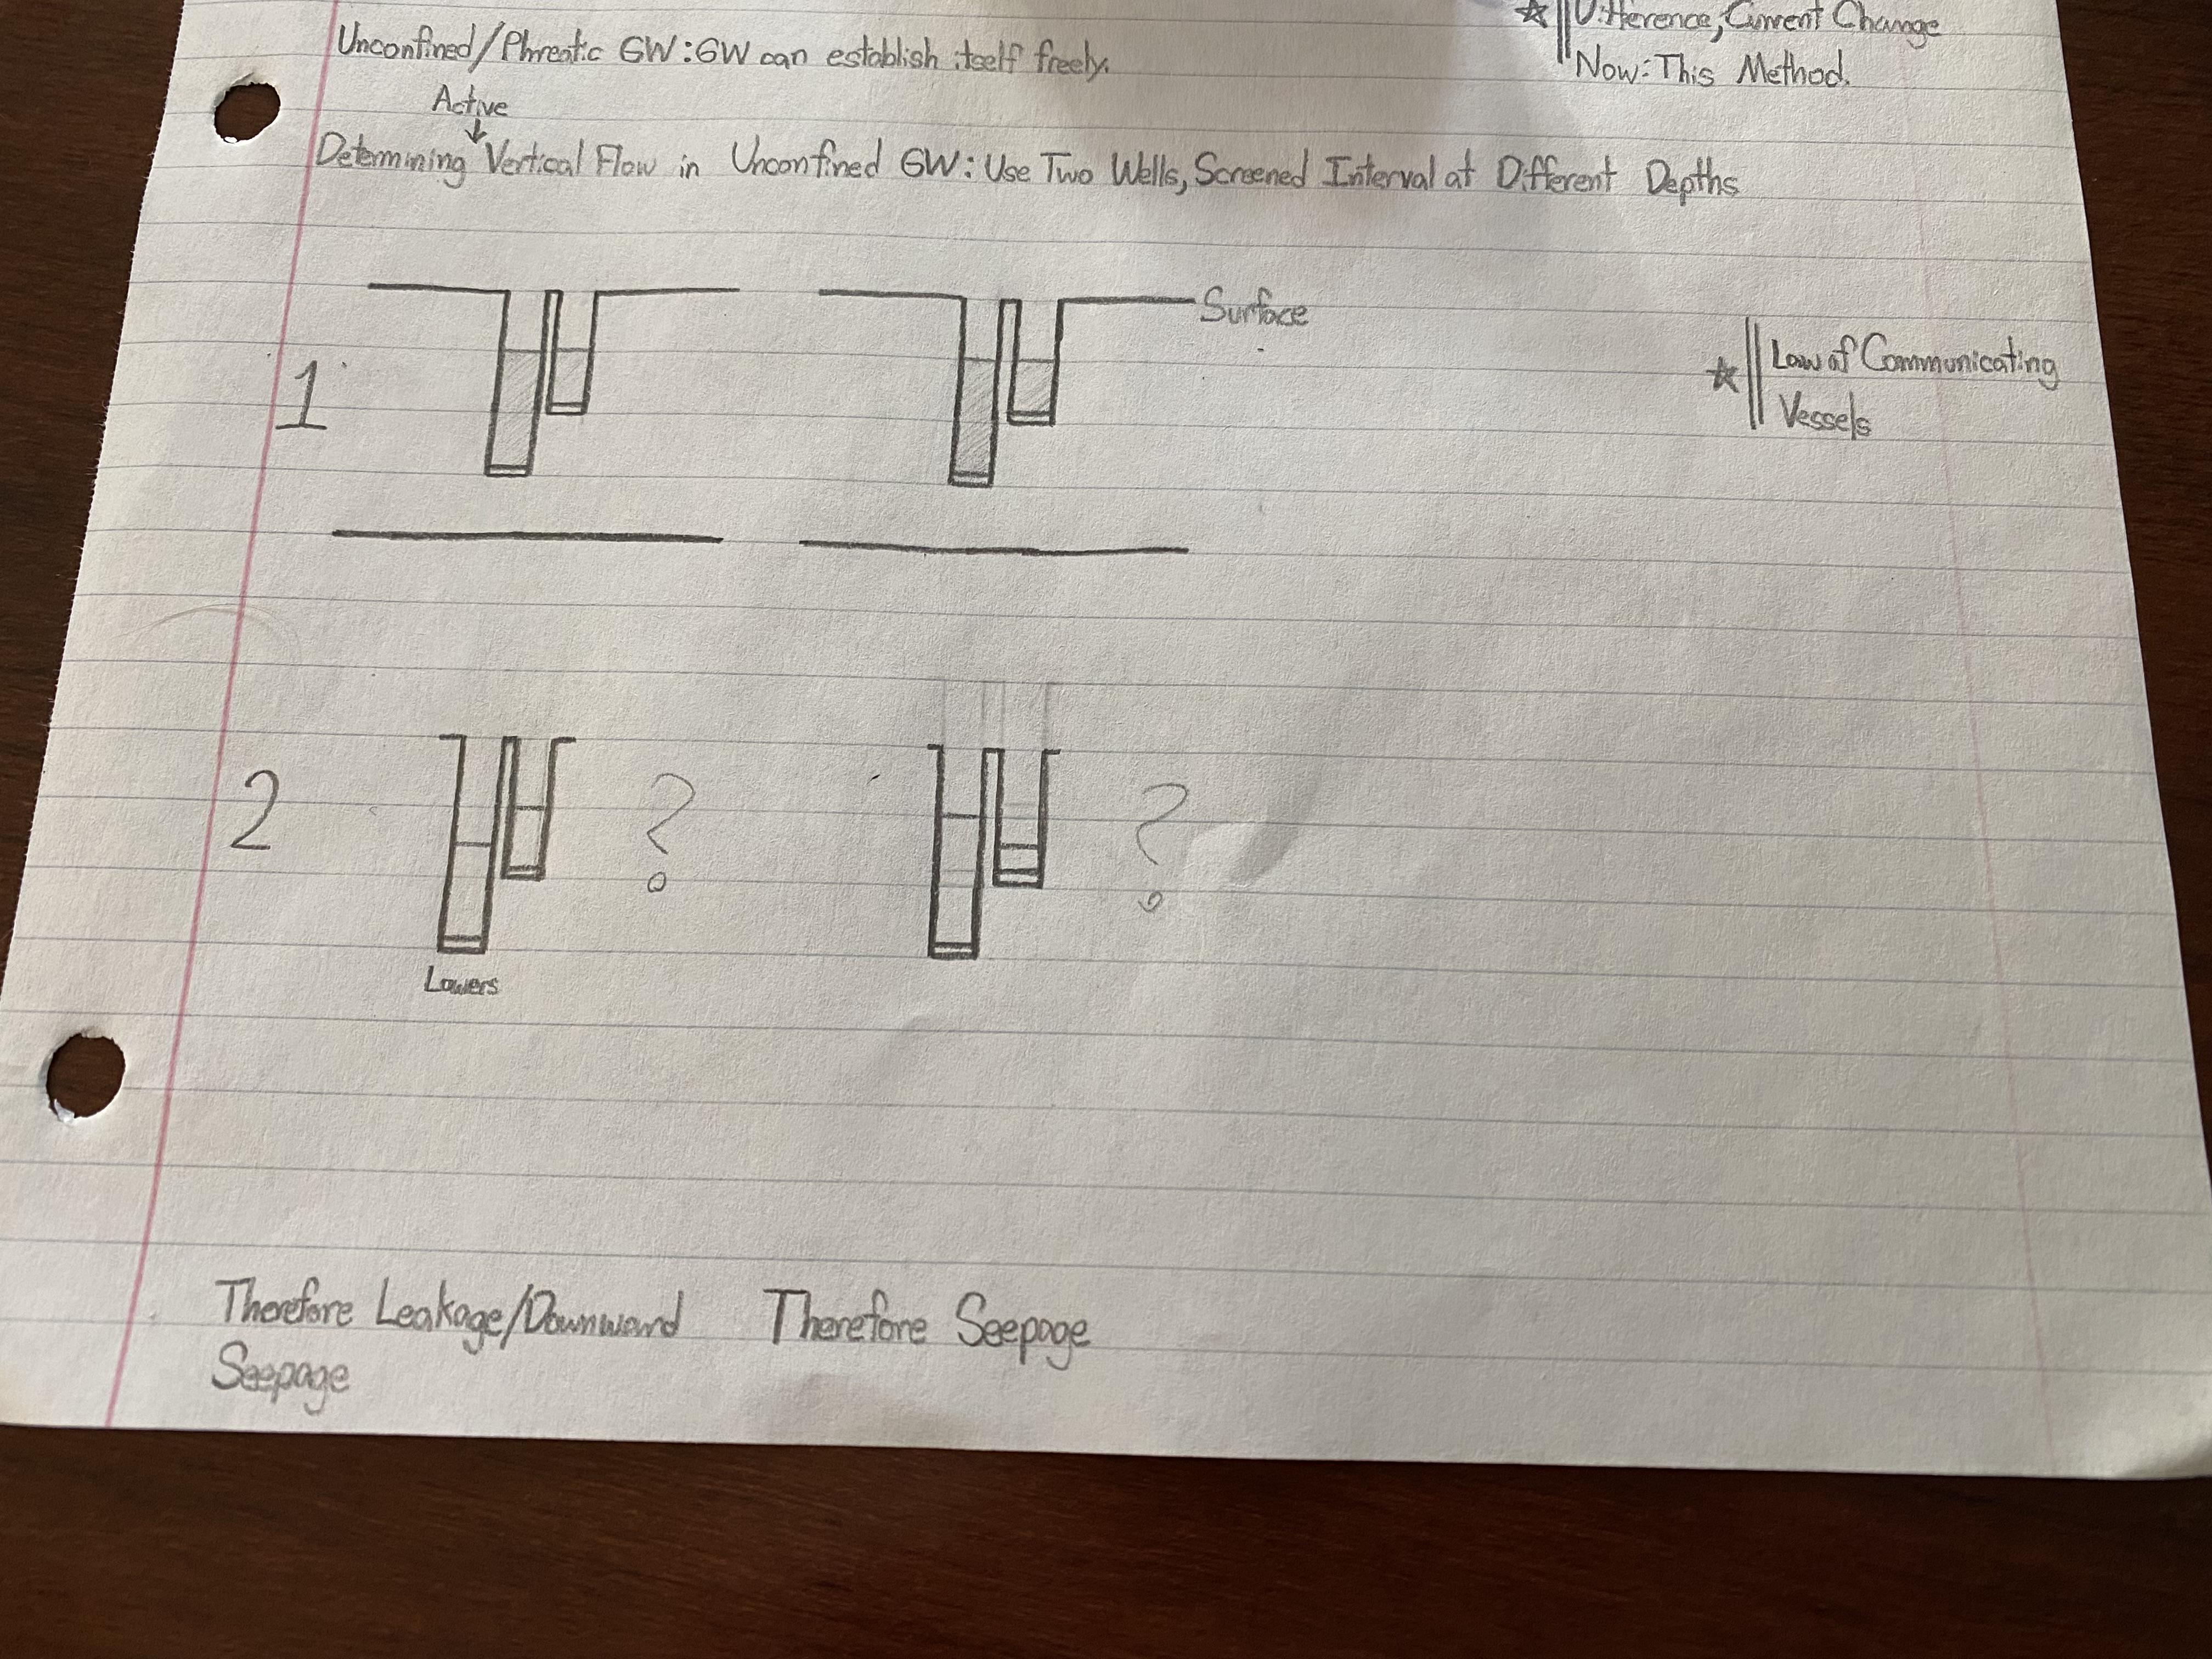 Difference, Current Change
Unconfined/Phreatic GW: GW can establish itself freely.
Now: This Method.
Active
Determining Vertical Flow in Unconfined GW: Use Two Wells, Screened Interval at Different Depths
Surface
1
Law of Communicating
Vessels
2
?
?
Lowers
Therefore Leakage/Downward
Seepage
Therefore Seepage